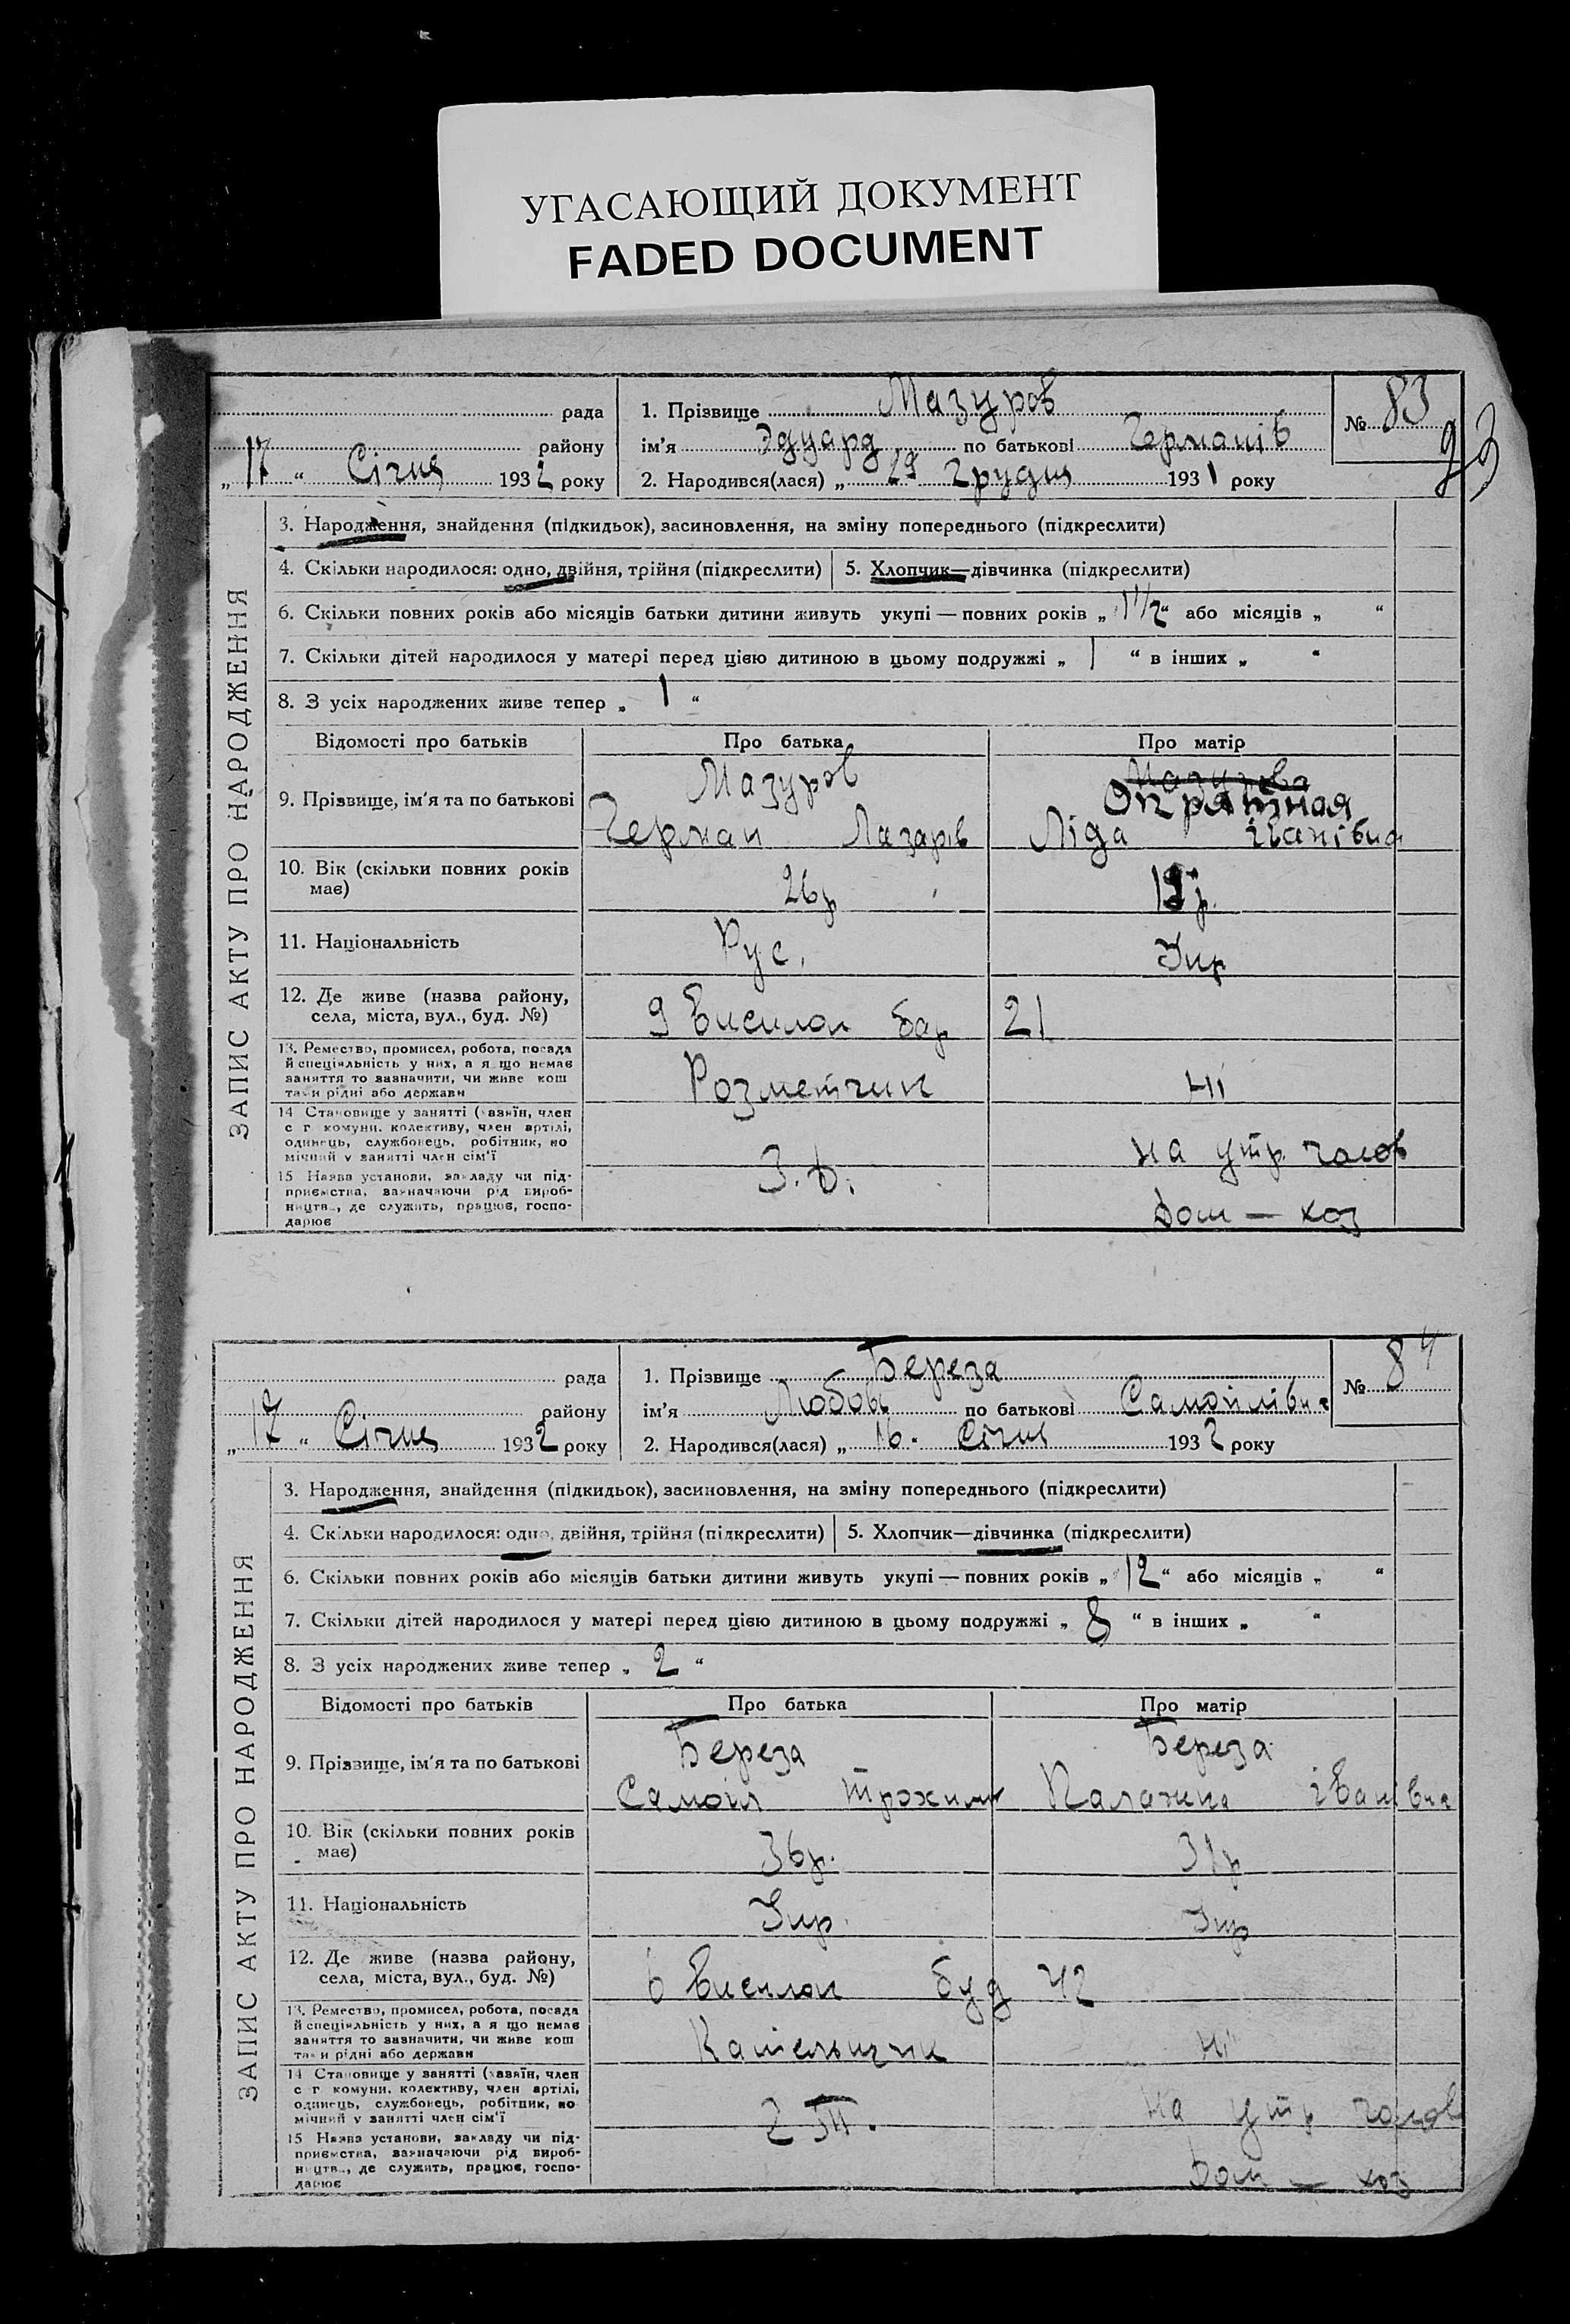 УГАСАЮЩИЙ ДОКУМЕНТ
FADED DOCUMENT
рада
району
„ 17 “ Січня 1932 року
1. Прізвище Мазуров
ім’я Эдуард по батькові Германів
2. Народився(лася) „ 29 Грудня 1931 року
№ 83
93
ЗАПИС АКТУ ПРО НАРОДЖЕННЯ
3. Народження, знайдення (підкидьок), засиновлення, на зміну попереднього (підкреслити)
4. Скільки народилося: одно, двійня, трійня (підкреслити) 5. Хлопчик—дівчинка (підкреслити)
6. Скільки повних років або місяців батьки дитини живуть укупі — повних років „ 1 1/2 “ або місяців „ “
7. Скільки дітей народилося у матері перед цією дитиною в цьому подружжі „ 1 “ в інших „ “
8. З усіх народжених живе тепер „ 1 “
Відомості про батьків Про батька Про матір
9. Прізвище, ім’я та по батькові
Мазуров
Герман Лазарів
Мазурова
Опрятная
Ліда Іванівна
10. Вік (скільки повних років
має)
26р
р.
11. Національність Рус. Укр
12. Де живе (назва району,
села, міста, вул., буд. №)
9 Висилок бар 21
13. Ремество, промисел, робота, посада
й спеціяльність у них, а якщо немає
заняття то зазначити, чи живе кош
тами рідні або держави
Розметчик
Ні
14 Становище у занятті (хазяїн, член
с г комуни, колективу, член артілі,
одинець, службовець, робітник, по
мічний у занятті член сім’ї
на утр. голов
15 Назва установи, закладу чи під-
приємства, зазначаючи рід вироб-
ництв., де служить, працює, госпо-
дарює
Дом — хоз
рада
району
„ 17 “ Січня 1932 року
1. Прізвище Береза
ім’я Любовь по батькові Самойлівна
2. Народився(лася) „ 16. Січня 1932 року
№ 84
ЗАПИС АКТУ ПРО НАРОДЖЕННЯ
3. Народження, знайдення (підкидьок), засиновлення, на зміну попереднього (підкреслити)
4. Скільки народилося: одно, двійня, трійня (підкреслити) 5. Хлопчик—дівчинка (підкреслити)
6. Скільки повних років або місяців батьки дитини живуть укупі — повних років „ 12 “ або місяців „ “
7. Скільки дітей народилося у матері перед цією дитиною в цьому подружжі „ 8 “ в інших „ “
8. З усіх народжених живе тепер „ 2 “
Відомості про батьків Про батька Про матір
9. Прізвище, ім’я та по батькові
Береза
Самоіл Трохим
Береза
Палажка Іванівна
10. Вік (скільки повних років
має)
36р.
31р
11. Національність Укр. Укр
12. Де живе (назва району,
села, міста, вул., буд. №)
6 Висилок буд 42
13. Ремество, промисел, робота, посада
й спеціяльність у них, а якщо немає
заняття то зазначити, чи живе кош
тами рідні або держави
Котельщик
Ні
14 Становище у занятті (хазяїн, член
с г комуни, колективу, член артілі,
одинець, службовець, робітник, по
мічний у занятті член сім’ї
на утр голов
15 Назва установи, закладу чи під-
приємства, зазначаючи рід вироб-
ництв., де служить, працює, госпо-
дарює
Дом — хоз